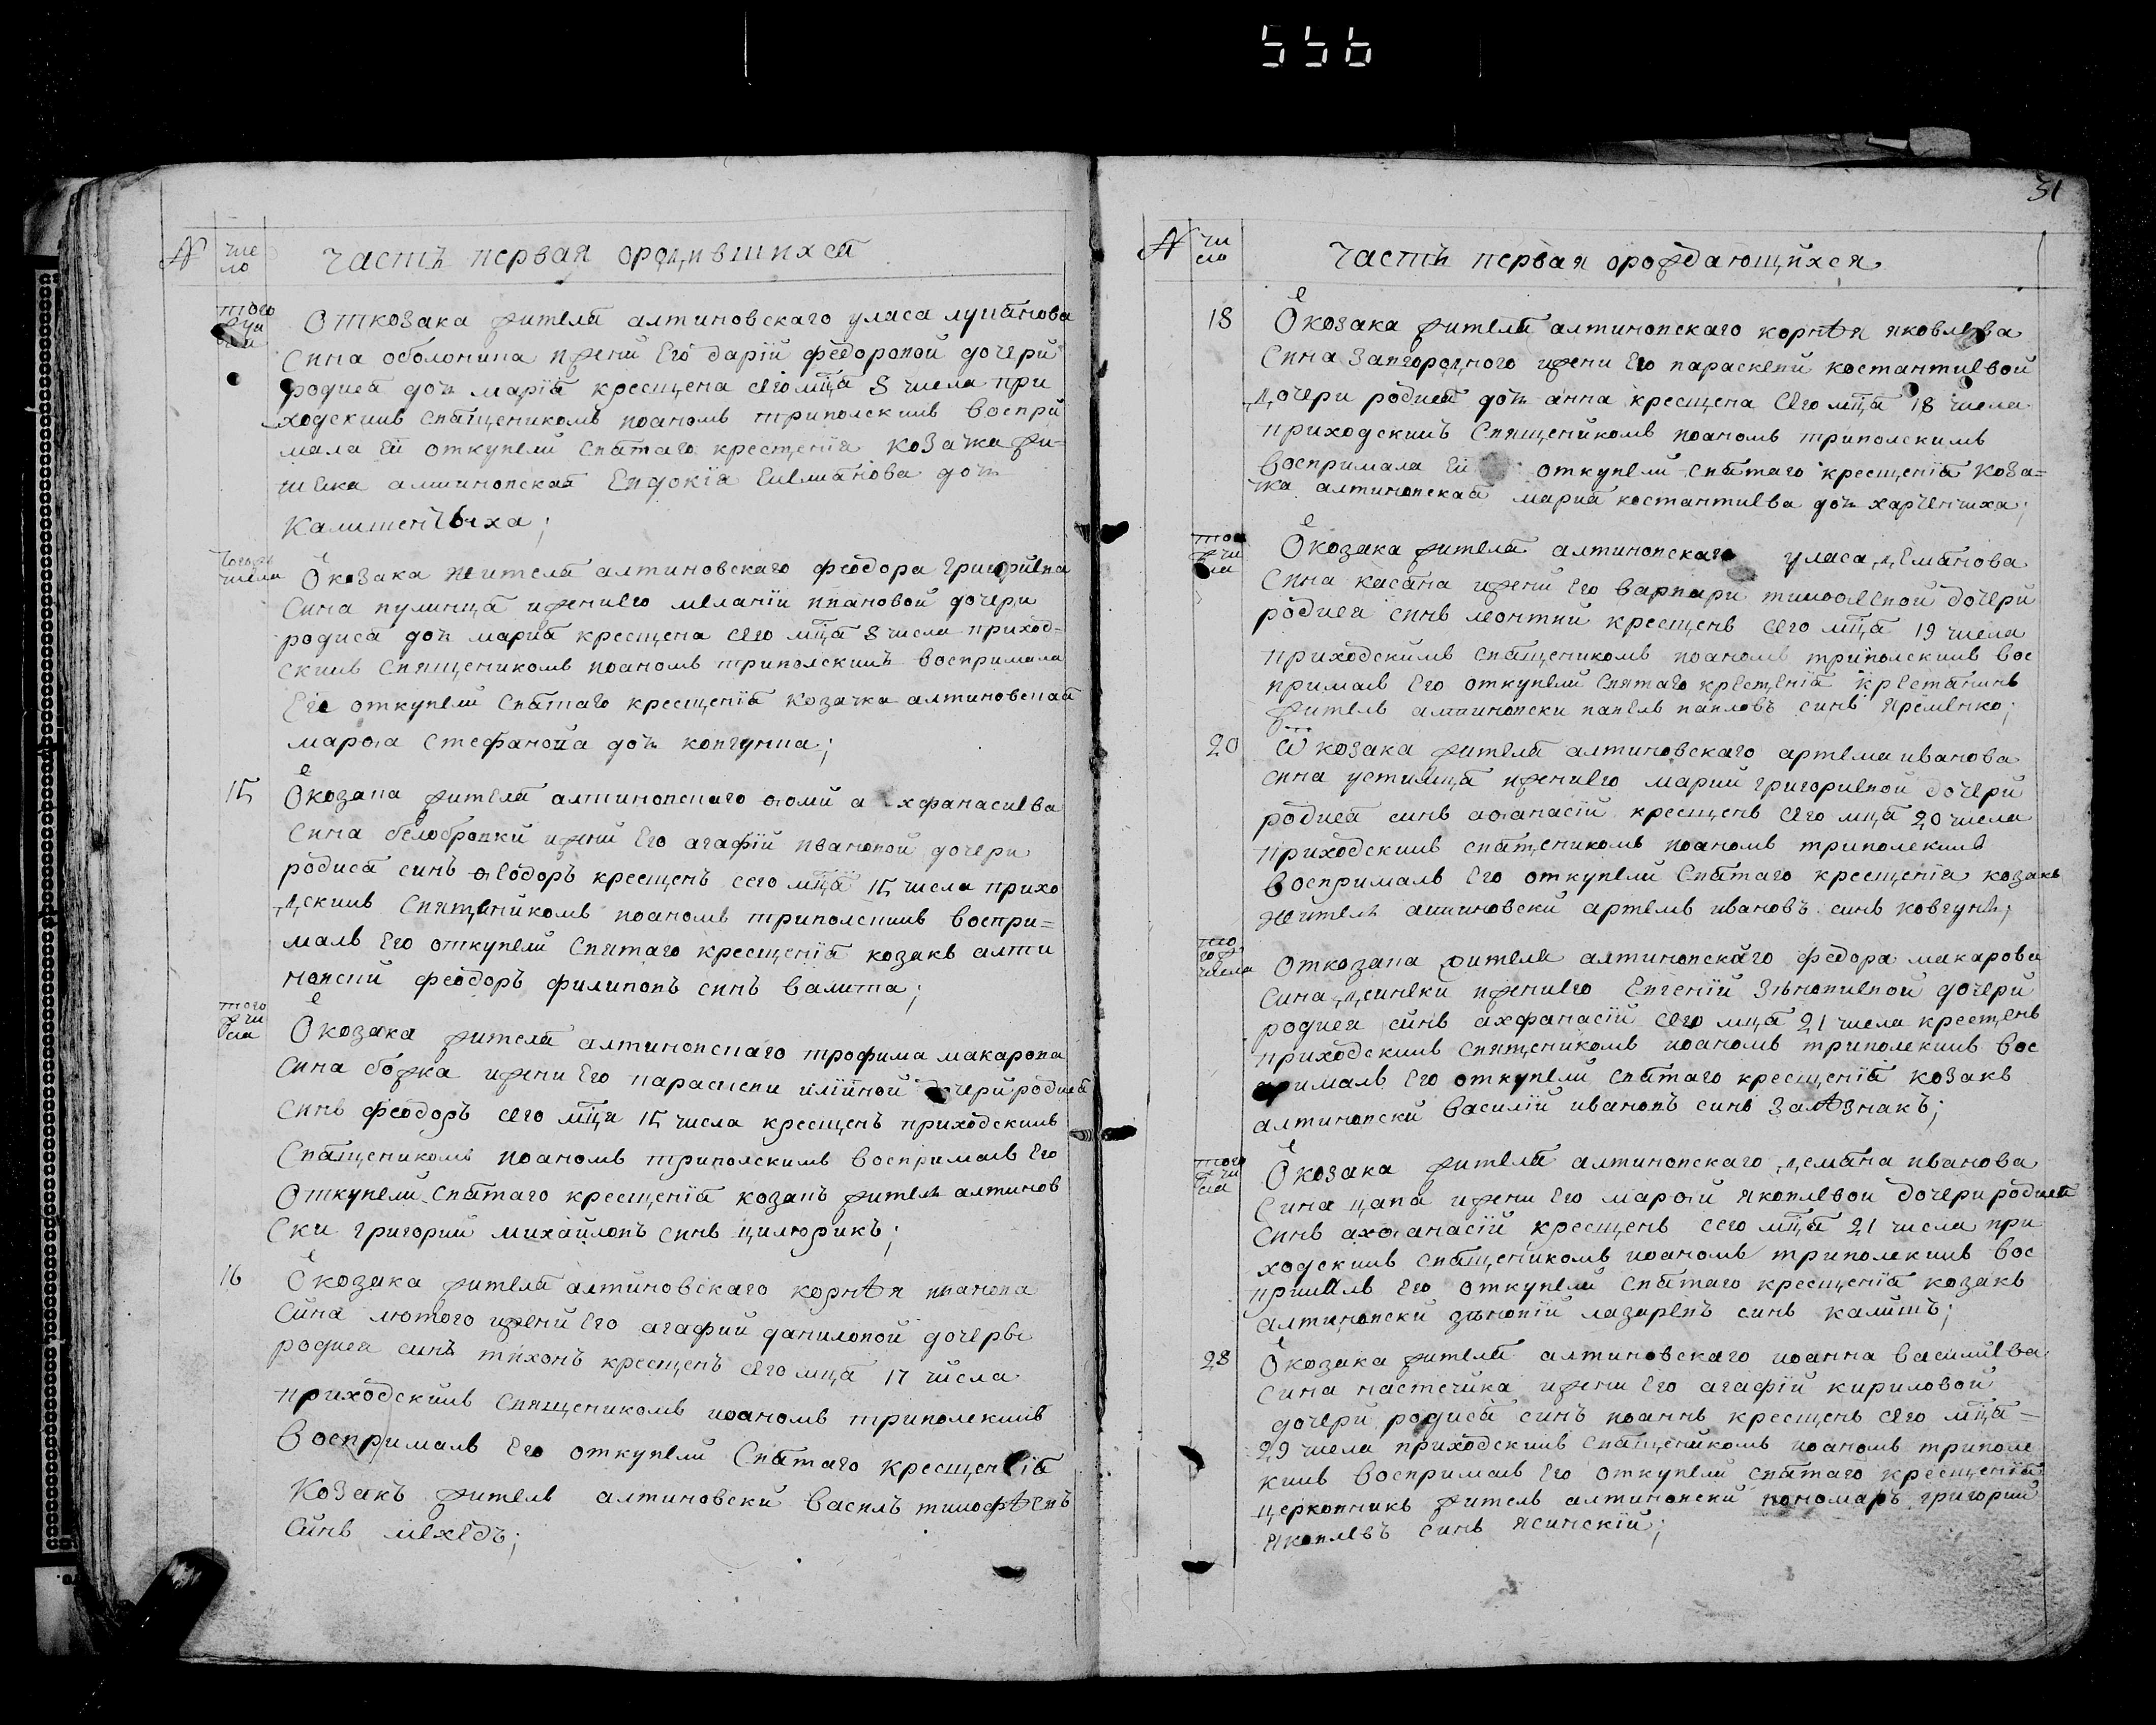 556
N чис ло часть первая ородившихся
того ж чи сла Откозака жителя алтиновскаго уласа
сина оболонина ижени его дарiй федоровой дочери
родися дочь марiя крещена сего мца 8 числа при
ходскимъ священикомъ иоаномъ триполскимъ воспри
мала ей откупели святаго крещенiя козачка жи=
телка алтиновская Евдокiя дочь
тогожъ числа Ѿ козака жителя алтиновскаго феодора григориева
сина пулинца иженыего меланiи ивановой дочери
родися дочь мария крещена сего мца 8 числа приход=
скимъ священикомъ иоаномъ триполскимъ воспримала
Его откупели святаго крещенiя козачка алтиновская
марфа стефанова дочь ковгунка;
15 Ѿ козака жителя алтиновскаго фоми ахфанасиева
сина белобровки ижени Его агафiй ивановой дочери
родися синъ феодоръ крещенъ сего мца 15 числа прихо
дскимъ священикомъ иоаномъ триполскимъ воспри=
малъ Его откупели святаго крещенiя козакъ алти
новский феодоръ филиповъ синъ валита;
того ж чи сла Ѿ козака жителя алтиновскаго трофима макарова
сина божка ижени Его параскеви илiйной дочери родися
синъ феодоръ сего мца 15 числа крещенъ приходскимъ
священикомъ иоаномъ триполскимъ воспрималъ Его
откупели святаго крещенiя козакъ житель алтинов
ски григорий михайловъ синъ цилюрикъ;
16 Ѿ козака жителя алтиновскаго корнѣя иванова
сина лютого ижени Его агафии даниловой дочеры
родися синъ тихонъ крещенъ сего мца 17 числа
приходскимъ священикомъ иоаномъ триполскимъ
воспрималъ Его откупели святаго крещенiя
козакъ житель алтиновски василь тимофѣевъ
синъ мехедъ;
31
N чи сло часть первая орождающихся
18 Ѿ козака жителя алтиновскаго корнѣя яковлева
сина Завгородного ижени Его параскевии костантиевой
дочери родися дочь анна крещена сего мца 18 числа
приходскимъ священикомъ иоаномъ триполскимъ
воспримала Ей откупели святаго крещенiя коза=
чка алтиновская мария костантиева дочь харченчиха;
того ж чи сла Ѿ козака жителя алтиновскаго уласа демянова
сина касяна ижени Его варвари тимофеевой дочери
родися синъ леонтий крещенъ сего мца 19 числа
приходскимъ священикомъ иоаномъ триполскимъ вос
прималъ Его откупели святаго крещенiя крестянинъ
житель алтиновски павелъ павловъ синъ яременко;
20 Ѿ козака жителя алтиновскаго артема иванова
сина устимца иженыего марии григориевой дочери
родися синъ афанасiй крещенъ сего мца 20 числа
приходскимъ священикомъ иоаномъ триполскимъ
воспрималъ Его откупели святаго крещенiя козакъ
житель алтиновски артемъ ивановъ синъ ковгунъ;
того гож числа Откозака жителя алтиновскаго федора макарова
сина дсинеки иженыего Евгенiй Зѣновиевой дочери
родися синъ ахфанасiй сего мца 21 числа крещенъ
приходскимъ священикомъ иоаномъ триполскимъ вос
прималъ Его откупели святаго крещенiя козакъ
алтиновски василiй ивановъ синъ Залѣзнакъ;
того ж чи сла Ѿ козака жителя алтиновскаго демяна иванова
сина цапа ижени Его марфий яковлевой дочери родися
синъ ахфанасiй крещенъ сего мца 21 числа при
ходскимъ священикомъ иоаномъ триполскимъ вос
приялъ Его откупели святаго крещенiя козакъ
алтиновски зѣновiй лазаревъ синъ калишъ;
28 Ѿ козака жителя алтиновскаго иоанна василиева
сина настечика ижени Его агафiй кириловой
дочери родися синъ иоаннъ крещенъ сего мца=
29 числа приходскимъ священикомъ иоаномъ триполс
кимъ воспрималъ Его откупели святаго крещенiя
церковникъ житель алтиновски пономаръ григорий
яковлевъ синъ ясинскiй;